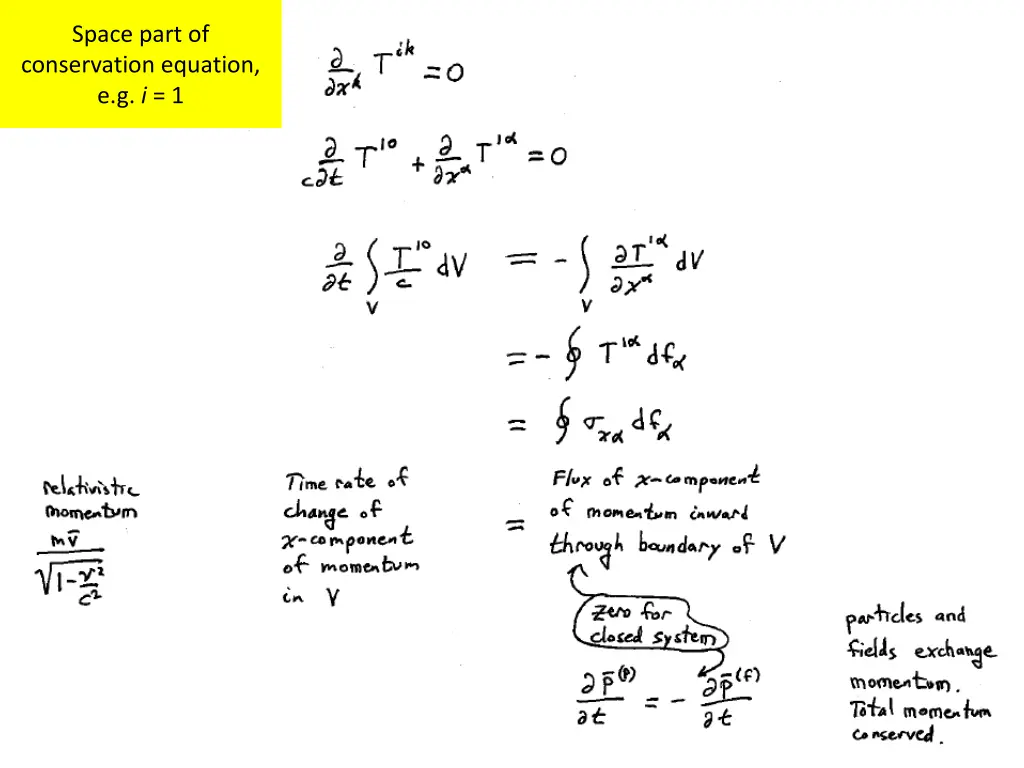 Space part of
conservation equation,
e.g. i = 1
∂/∂xᵏ Tⁱᵏ = 0
∂/c∂t T¹⁰ + ∂/∂xᵅ T¹ᵅ = 0
∂/∂t ∫_V T¹⁰/c dV = - ∫_V ∂T¹ᵅ/∂xᵅ dV
= - ∮ T¹ᵅ df_α
= ∮ σ_xα df_α
relativistic
momentum
mv̄ / √(1 - v²/c²)
Time rate of
change of
x-component
of momentum
in V
=
Flux of x-component
of momentum inward
through boundary of V
Zero for
closed system
∂p̄⁽ᵖ⁾/∂t = - ∂p̄⁽ᶠ⁾/∂t
particles and
fields exchange
momentum.
Total momentum
conserved.